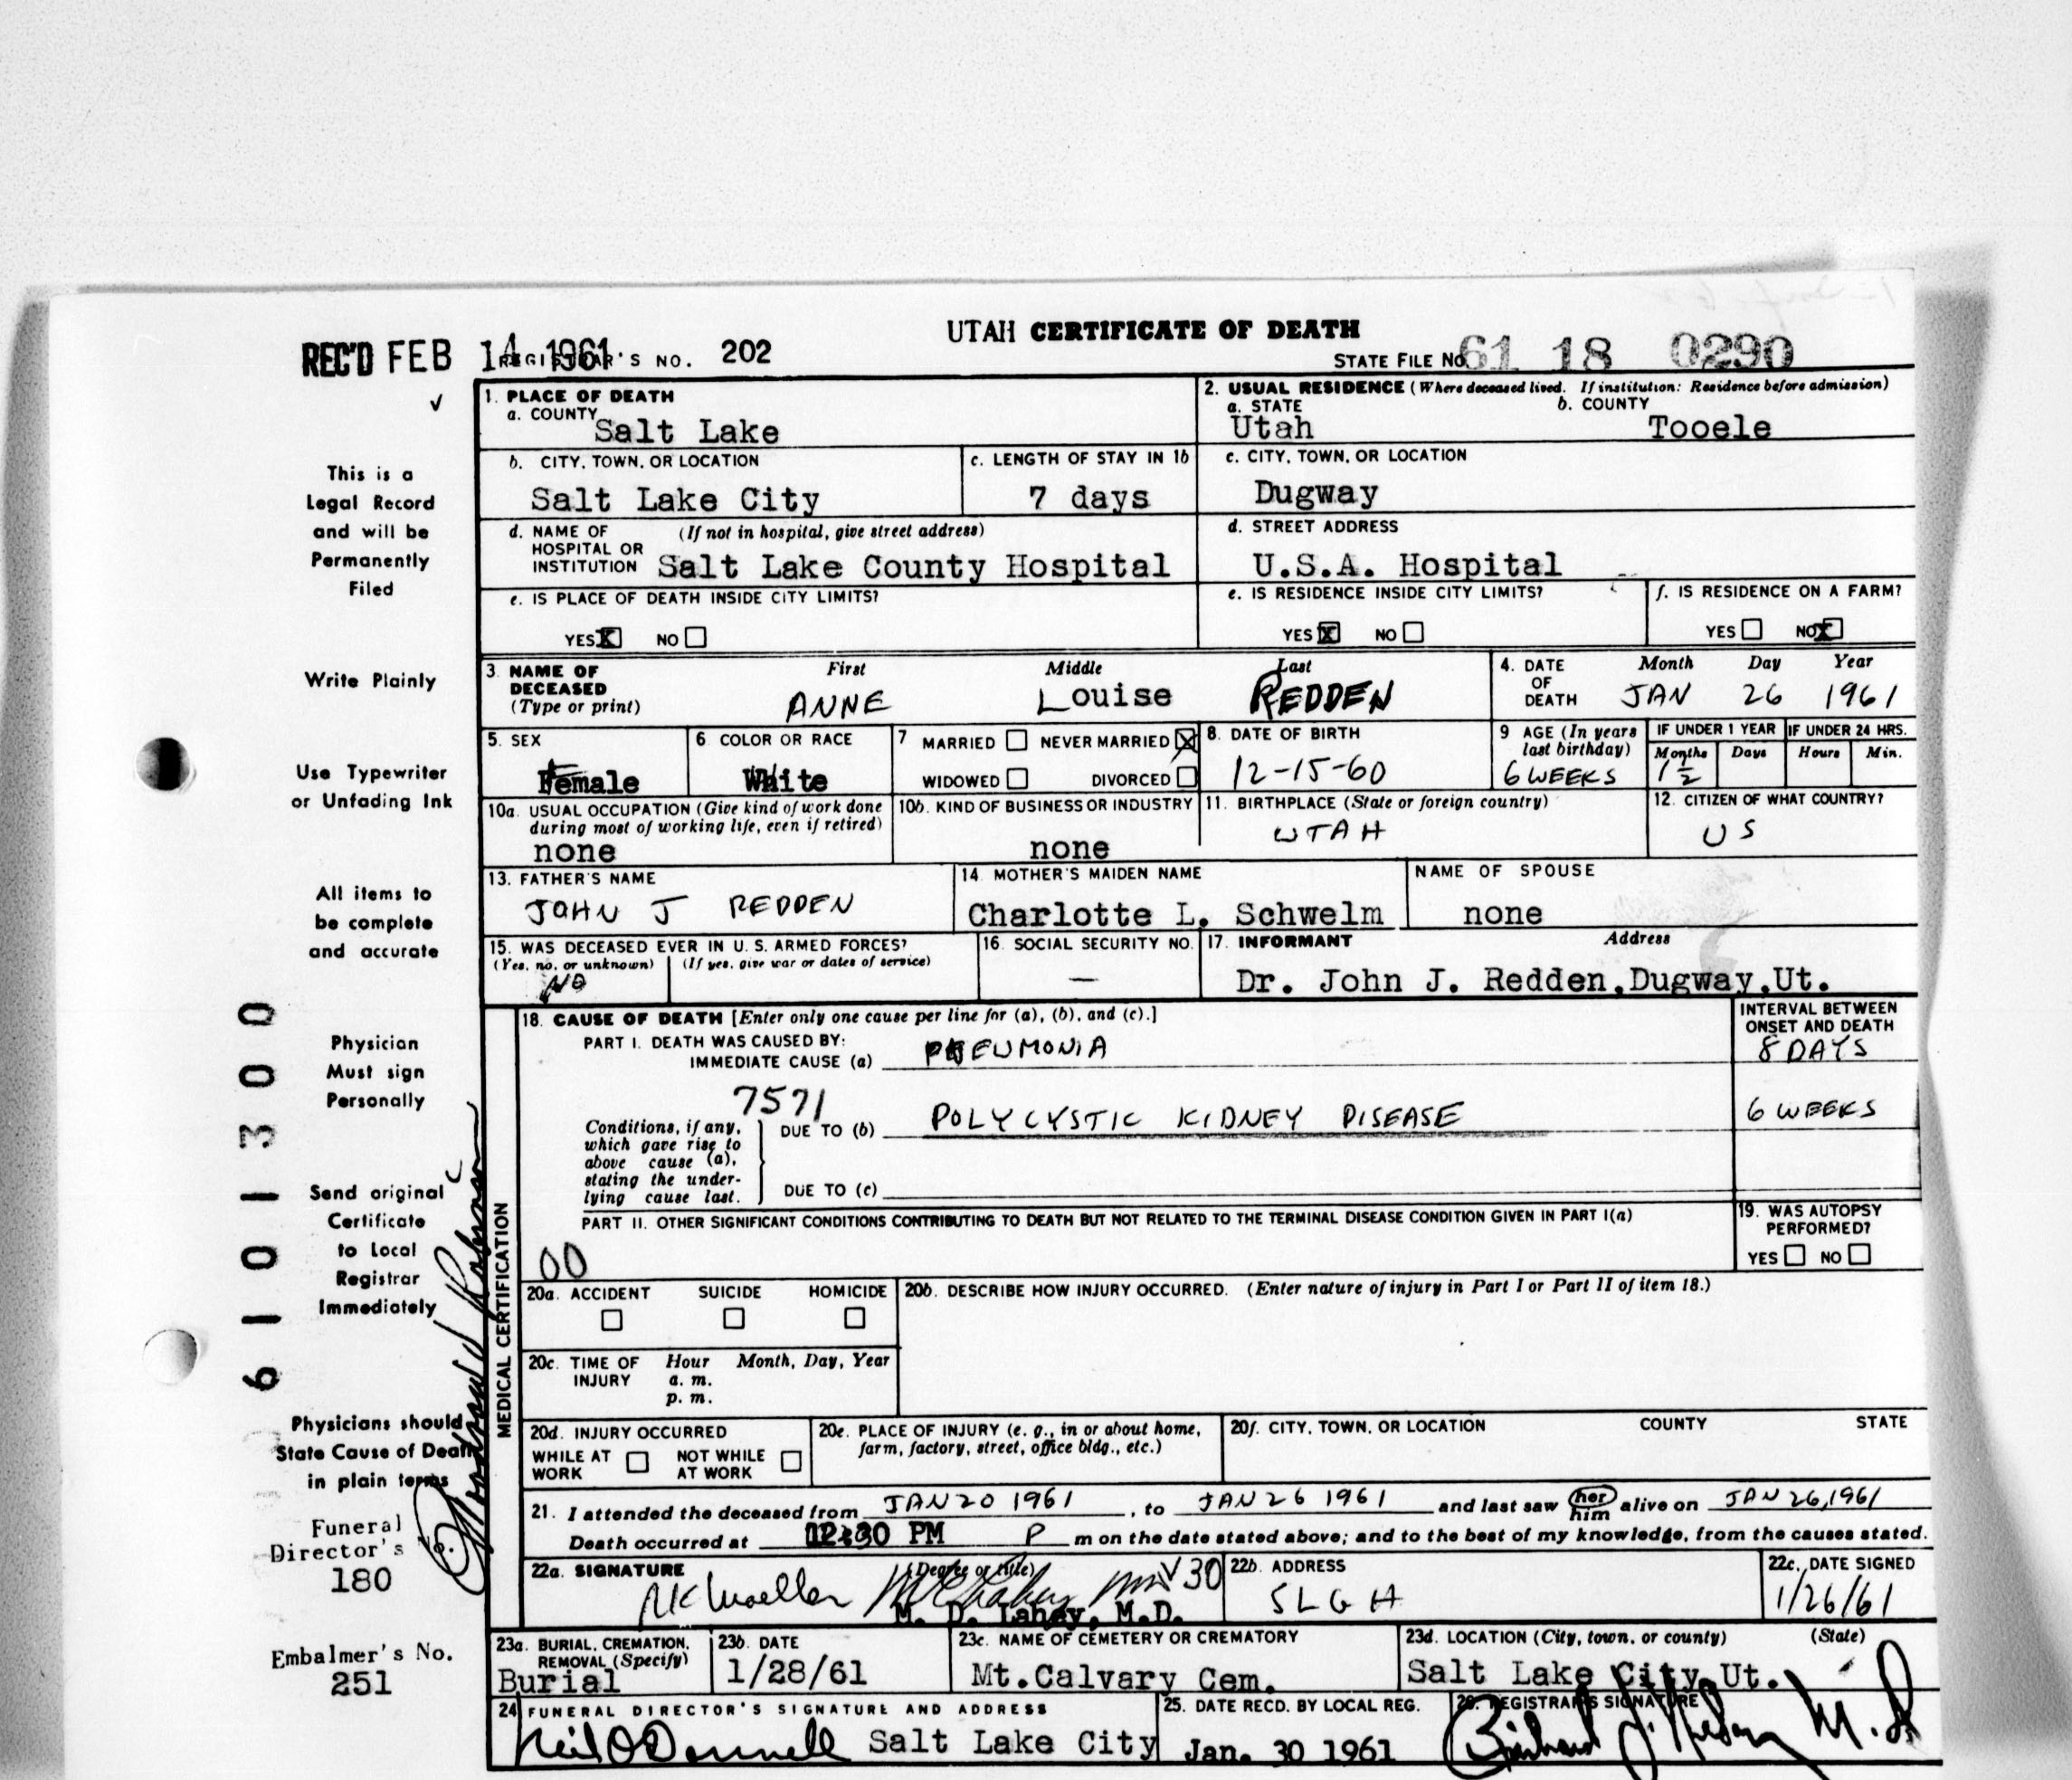 UTAH CERTIFICATE OF DEATH
REC'D FEB 14 1961 REGISTRAR'S NO. 202
STATE FILE No. 61 18 0290
1. PLACE OF DEATH
a. COUNTY Salt Lake
2. USUAL RESIDENCE (Where deceased lived. If institution: Residence before admission)
a. STATE Utah b. COUNTY Tooele
b. CITY, TOWN, OR LOCATION Salt Lake City
c. LENGTH OF STAY IN 1b 7 days
c. CITY, TOWN, OR LOCATION Dugway
d. NAME OF HOSPITAL OR INSTITUTION (If not in hospital, give street address) Salt Lake County Hospital
d. STREET ADDRESS U.S.A. Hospital
e. IS PLACE OF DEATH INSIDE CITY LIMITS?
YES X NO
e. IS RESIDENCE INSIDE CITY LIMITS?
YES X NO
f. IS RESIDENCE ON A FARM?
YES NO X
3. NAME OF DECEASED (Type or print) First Middle Last
ANNE Louise REDDEN
4. DATE OF DEATH Month Day Year
JAN 26 1961
5. SEX Female
6. COLOR OR RACE White
7 MARRIED NEVER MARRIED X
WIDOWED DIVORCED
8. DATE OF BIRTH 12-15-60
9 AGE (In years last birthday) 6 WEEKS
IF UNDER 1 YEAR Months Days 1½
IF UNDER 24 HRS. Hours Min.
10a. USUAL OCCUPATION (Give kind of work done during most of working life, even if retired)
none
10b. KIND OF BUSINESS OR INDUSTRY
none
11. BIRTHPLACE (State or foreign country)
UTAH
12. CITIZEN OF WHAT COUNTRY?
US
13. FATHER'S NAME
JOHN J REDDEN
14. MOTHER'S MAIDEN NAME
Charlotte L. Schwelm
NAME OF SPOUSE
none
15. WAS DECEASED EVER IN U. S. ARMED FORCES?
(Yes, no, or unknown) (If yes, give war or dates of service)
NO
16. SOCIAL SECURITY NO.
—
17. INFORMANT Address
Dr. John J. Redden, Dugway, Ut.
18. CAUSE OF DEATH [Enter only one cause per line for (a), (b), and (c).]
INTERVAL BETWEEN ONSET AND DEATH
PART I. DEATH WAS CAUSED BY:
IMMEDIATE CAUSE (a) PNEUMONIA 8 DAYS
7571
Conditions, if any, which gave rise to above cause (a), stating the underlying cause last.
DUE TO (b) POLYCYSTIC KIDNEY DISEASE 6 WEEKS
DUE TO (c)
PART II. OTHER SIGNIFICANT CONDITIONS CONTRIBUTING TO DEATH BUT NOT RELATED TO THE TERMINAL DISEASE CONDITION GIVEN IN PART I(a)
00
19. WAS AUTOPSY PERFORMED?
YES NO
20a. ACCIDENT SUICIDE HOMICIDE
20b. DESCRIBE HOW INJURY OCCURRED. (Enter nature of injury in Part I or Part II of item 18.)
20c. TIME OF INJURY Hour Month, Day, Year
a. m.
p. m.
20d. INJURY OCCURRED
WHILE AT WORK NOT WHILE AT WORK
20e. PLACE OF INJURY (e. g., in or about home, farm, factory, street, office bldg., etc.)
20f. CITY, TOWN, OR LOCATION COUNTY STATE
21. I attended the deceased from JAN 20 1961, to JAN 26 1961 and last saw her him alive on JAN 26, 1961
Death occurred at 12:30 PM P m on the date stated above; and to the best of my knowledge, from the causes stated.
22a. SIGNATURE (Degree or title)
V30
M. D. Lahey, M.D.
22b. ADDRESS
SLGH
22c. DATE SIGNED
1/26/61
23a. BURIAL, CREMATION, REMOVAL (Specify)
Burial
23b. DATE
1/28/61
23c. NAME OF CEMETERY OR CREMATORY
Mt.Calvary Cem.
23d. LOCATION (City, town, or county) (State)
Salt Lake City Ut.
24 FUNERAL DIRECTOR'S SIGNATURE AND ADDRESS
Neil O'Donnell Salt Lake City
25. DATE RECD. BY LOCAL REG.
Jan. 30 1961
26. REGISTRAR'S SIGNATURE
M.D.
MEDICAL CERTIFICATION
This is a
Legal Record
and will be
Permanently
Filed
Write Plainly
Use Typewriter
or Unfading Ink
All items to
be complete
and accurate
Physician
Must sign
Personally
Send original
Certificate
to Local
Registrar
Immediately
Physicians should
State Cause of Death
in plain terms
Funeral
Director's No.
180
Embalmer's No.
251
6101300